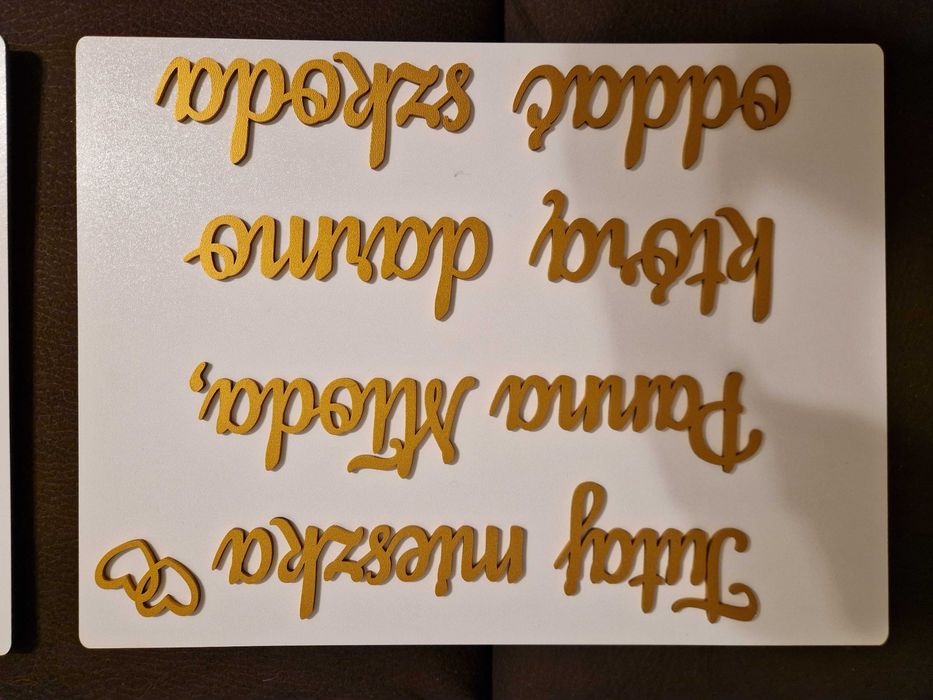 Tutaj mieszka
Panna Młoda,
którą darmo
oddać szkoda